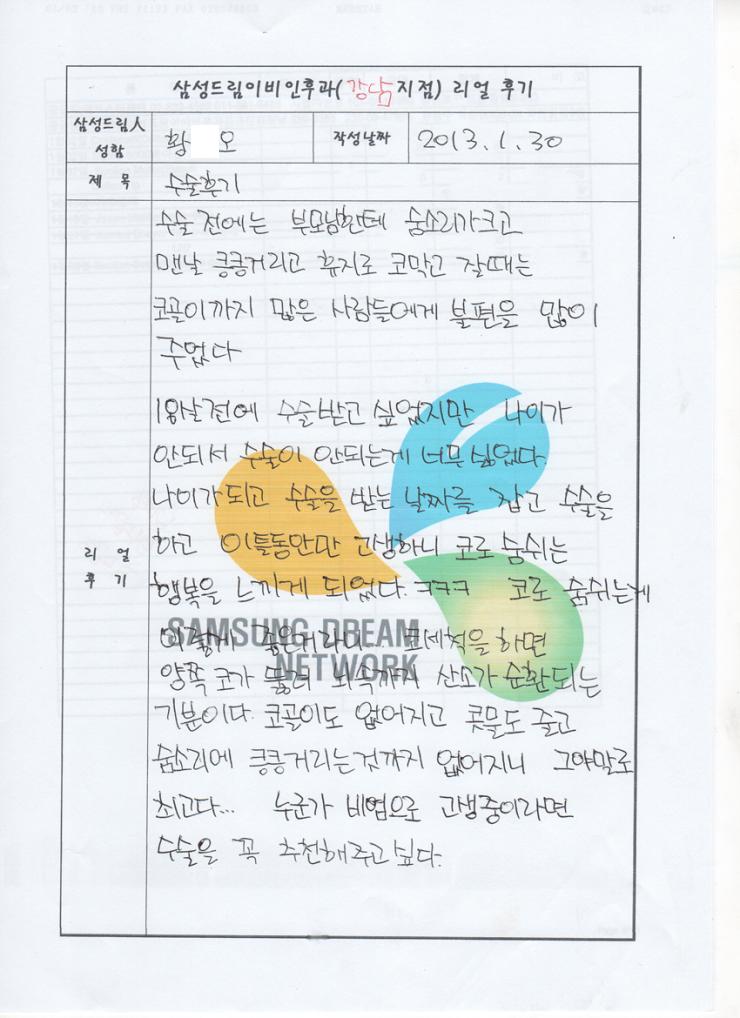 삼성드림이비인후과(강남지점) 리얼 후기
삼성드림人 성함
황 오
작성날짜
2013. 1. 30
제 목
수술후기
리 얼 후 기
수술 전에는 부모님한테 숨소리가크고
맨날 킁킁거리고 휴지로 코막고 잘때는
코골이까지 많은 사람들에게 불편을 많이
주었다
전에 수술받고 싶었지만 나이가
안되서 수술이 안되는게 너무 싫었다.
나이가되고 수술을 받는 날짜를 잡고 수술을
하고 이틀동안만 고생하니 코로 숨쉬는
행복을 느끼게 되었다. ㅋㅋㅋ 코로 숨쉬는게
이렇게 좋은거라니 코세척을하면
양쪽 코가 뚫려 뇌속까지 산소가 순환되는
기분이다. 코골이도 없어지고 콧물도 줄고
숨소리에 킁킁거리는것까지 없어지니 그야말로
최고다... 누군가 비염으로 고생중이라면
수술을 꼭 추천해주고싶다.
SAMSUNG DREAM
NETWORK